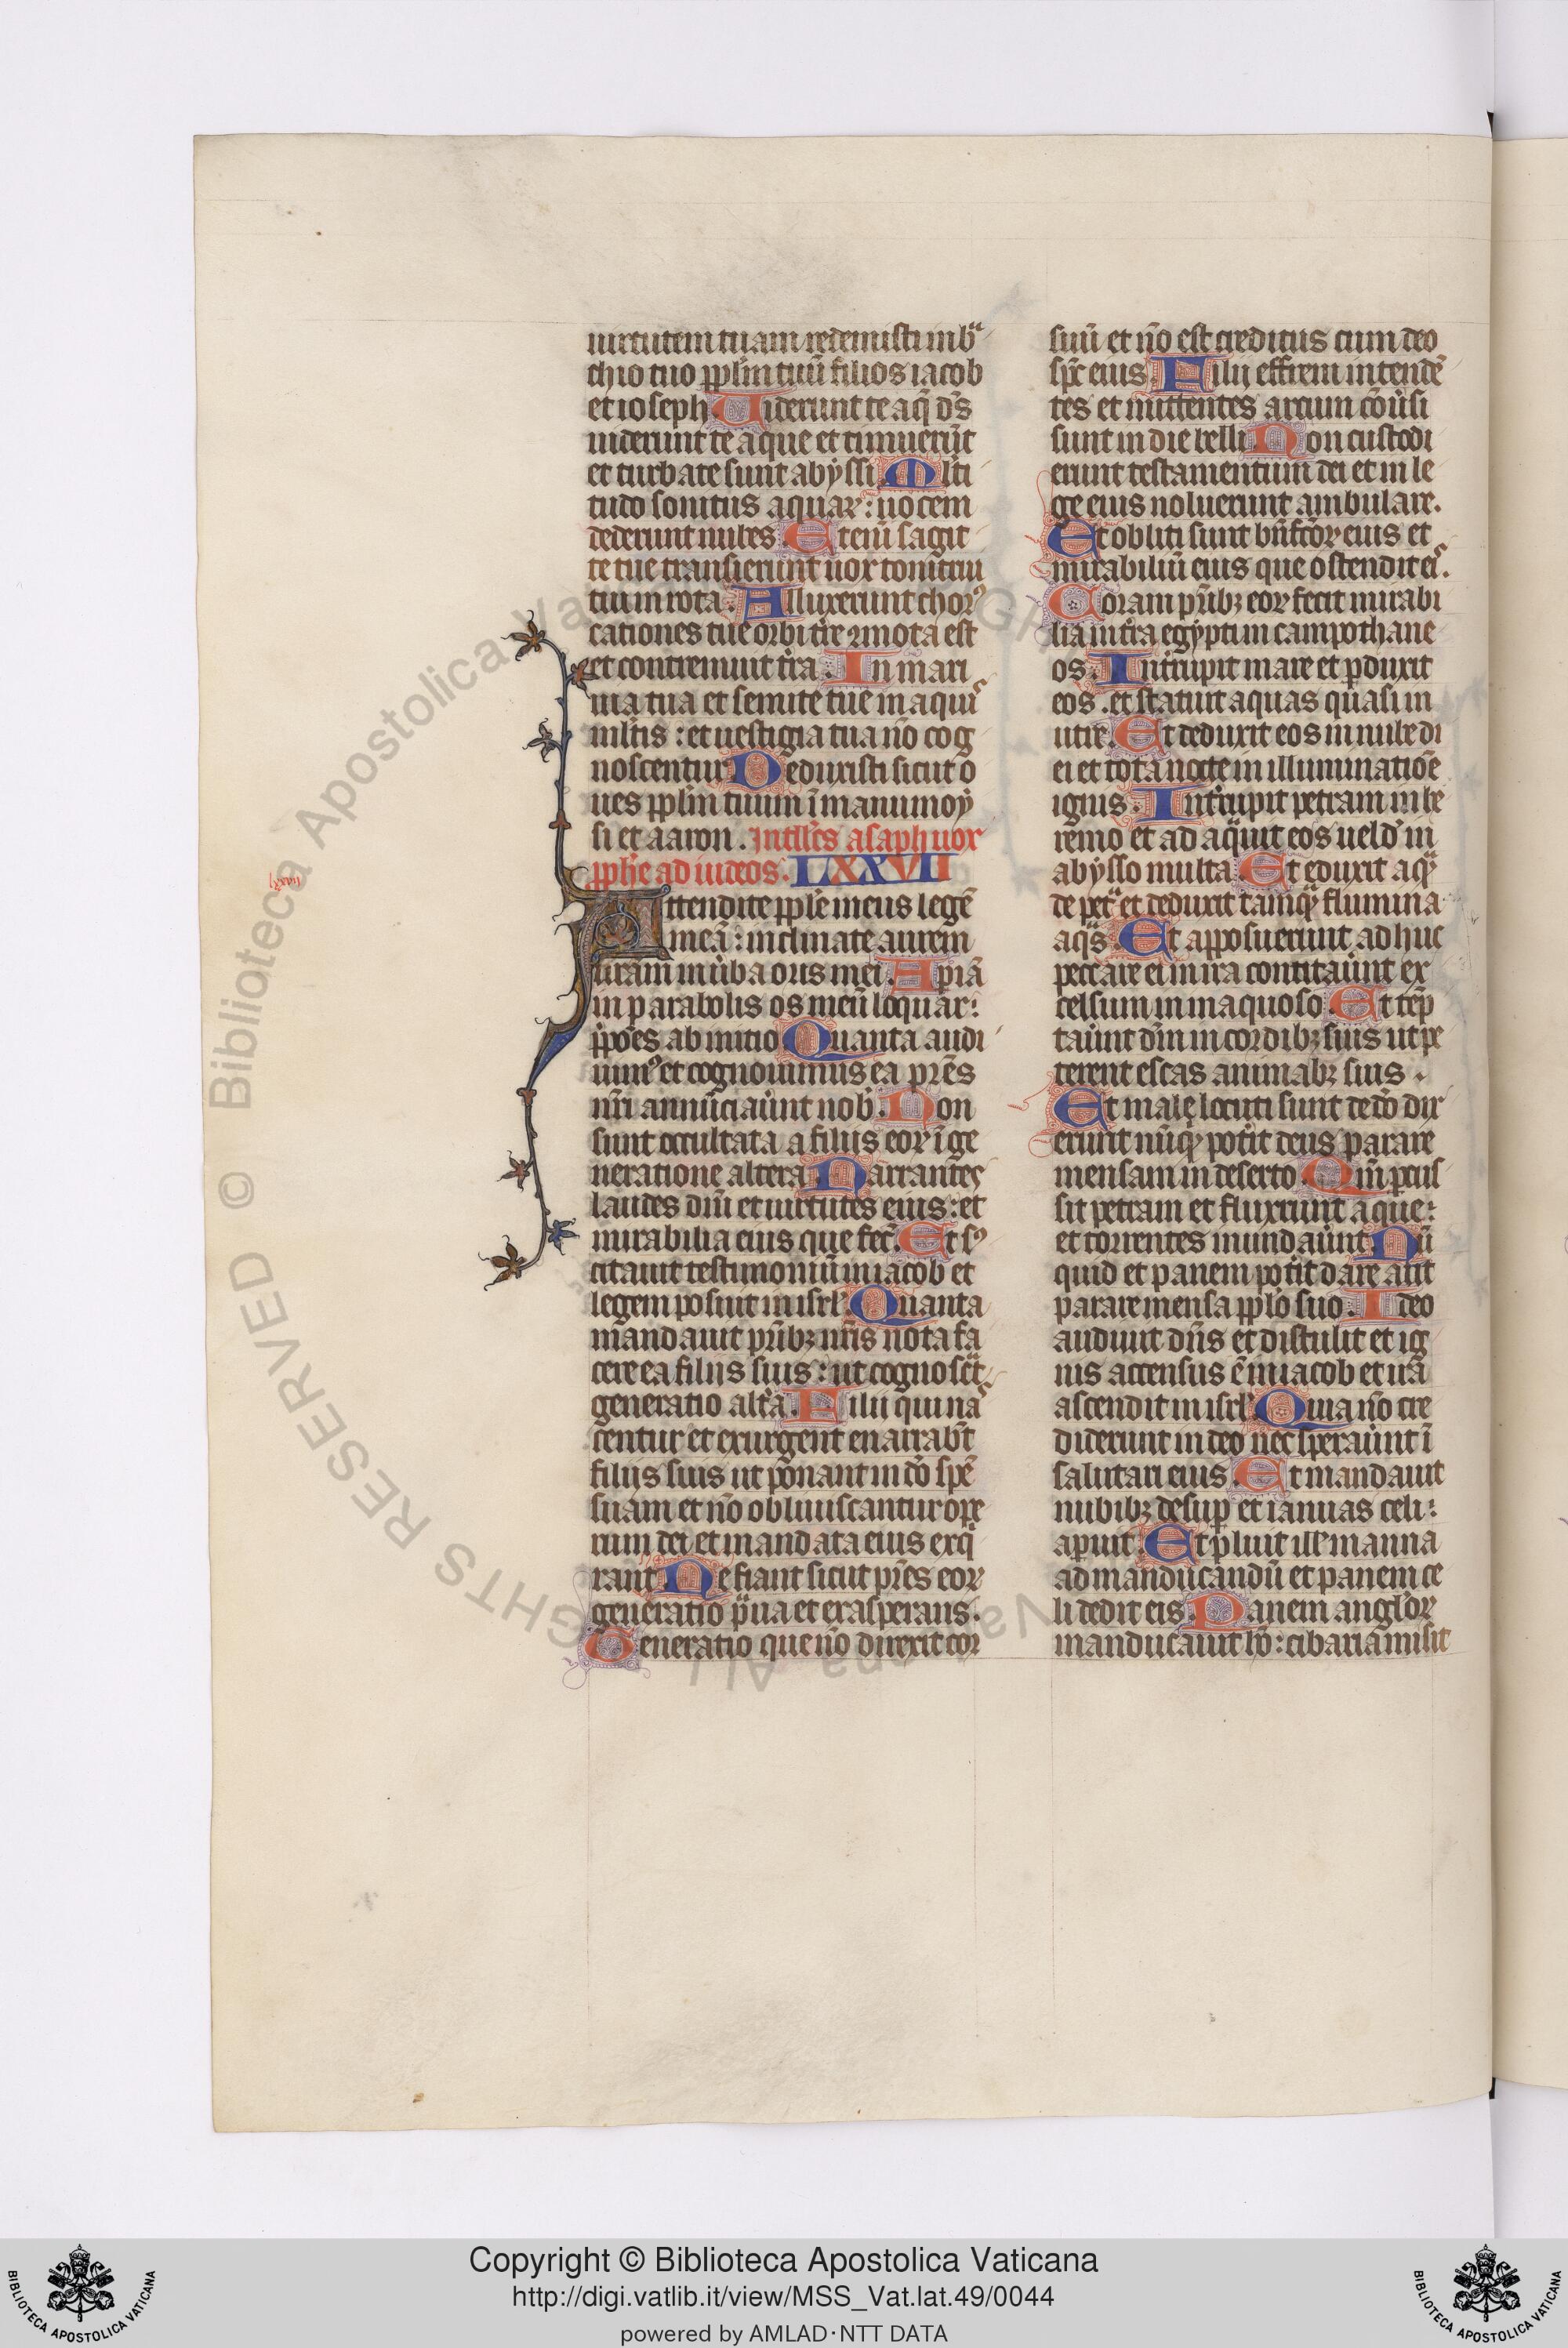 uirtutem tuam redemisti in bͣ
chio tuo pplm̄ tuū filios iacob
et ioseph. Uiderunt te aq̄ ds̄
uiderunt te aque et timuerūt
et turbate sunt abyssi. Mlti
tudo sonitus aquaꝝ: uocem
dederunt nubes. Etenī sagit
te tue transierunt uox tonitrui
tui in rota. Alluxerunt chorꝰ
cationes tue orbi tr̄e ꝯmota est
et contremuit tr̄a. In mari
uia tua et semite tue in aquis
mltis: et uestigia tua nō cog
noscentur. Deduxisti sicut o
ues pplm̄ tuum ī manu moy
si et aaron. Intllc̄s asaph uox
pphe ad iudeos. LXXVII
Attendite pple meus legē
meā: inclinate aurem
uram in uba oris mei. Apiā
in parabolis os meū loquar:
ppōes ab initio. Quanta audi
uimꝰ et cognouimus ea pres
nr̄i annūciaūnt nob. Non
sunt occultata a filijs eoꝝ ī ge
neratione altera. Narrantes
laudes dnī et uirtutes eius: et
mirabilia eius que fec̄. Et sꝰ
citauit testimoniū in iacob et
legem posuit in isrl. Quanta
mandauit prībꝫ nrīs nota fa
cere ea filijs suis: ut cognoscāt
generatio alt̄a. Filii qui nas
centur et exurgent enarrabt
filijs suis ut ponant in dō spē
suam et nō obliuiscantur ope
rum dei et mandata eius exq̄
rant. Ne fiant sicut pr̄es eoꝝ
generatio pua et exasperans.
Generatio que nō direxit cor
suū et nō est creditus cum deo
spc̄ eius. Filij effrem intendē
tes et mittentes arcum cōu̇si
sunt in die belli. Non custodi
erunt testamentum dei et in le
ge eius noluerunt ambulare.
Et obliti sunt bn̄fc̄oꝝ eius et
mirabiliū eius que ostendit eis.
Coram prībꝫ eoꝝ fecit mirabi
lia in tr̄a egypti in campo thane
os. Intrupit mare et pduxit
eos. et statuit aquas quasi in
utre. Et deduxit eos in nube di
ei et tota nocte in illuminatiōe
ignis. Intrupit petram in he
remo et ad aq̄uit eos uelđ in
abysso multa. Et eduxit aqͣ
de petͣ et deduxit tamqͣ flumina
aqͣs. Et apposuerunt ad huc
peccare ei in ira contitaūnt ex
celsum in inaquoso. Et tēp
taūnt dm̄ in cordibꝫ suis ut pe
terent escas animabꝫ suis.
Et male locuti sunt de dō dix
erunt nūqͣ potit deus parare
mensam in deserto. Qm̄ pcus
sit petram et fluxerunt aque:
et torrentes inundaūnt. Nū
quid et panem potit dare aut
parare mensa pplo suo. Ideo
audiuit dns̄ et distulit et ig
nis accensus ē in iacob et ira
ascendit in isrl. Quia nō cre
diderunt in deo nec speraūnt ī
salutari eius. Et mandauit
nubibꝫ desup et ianuas celi:
apuit. Et pluit ill manna
ad manducandū et panem ce
li dedit eis. Panem angl'oꝝ
manducauit hō: cibaria misit
lxxvij
© Biblioteca Apostolica Vaticana ALL RIGHTS RESERVED
Copyright © Biblioteca Apostolica Vaticana
http://digi.vatlib.it/view/MSS_Vat.lat.49/0044
powered by AMLAD·NTT DATA
BIBLIOTECA APOSTOLICA VATICANA
BIBLIOTECA APOSTOLICA VATICANA